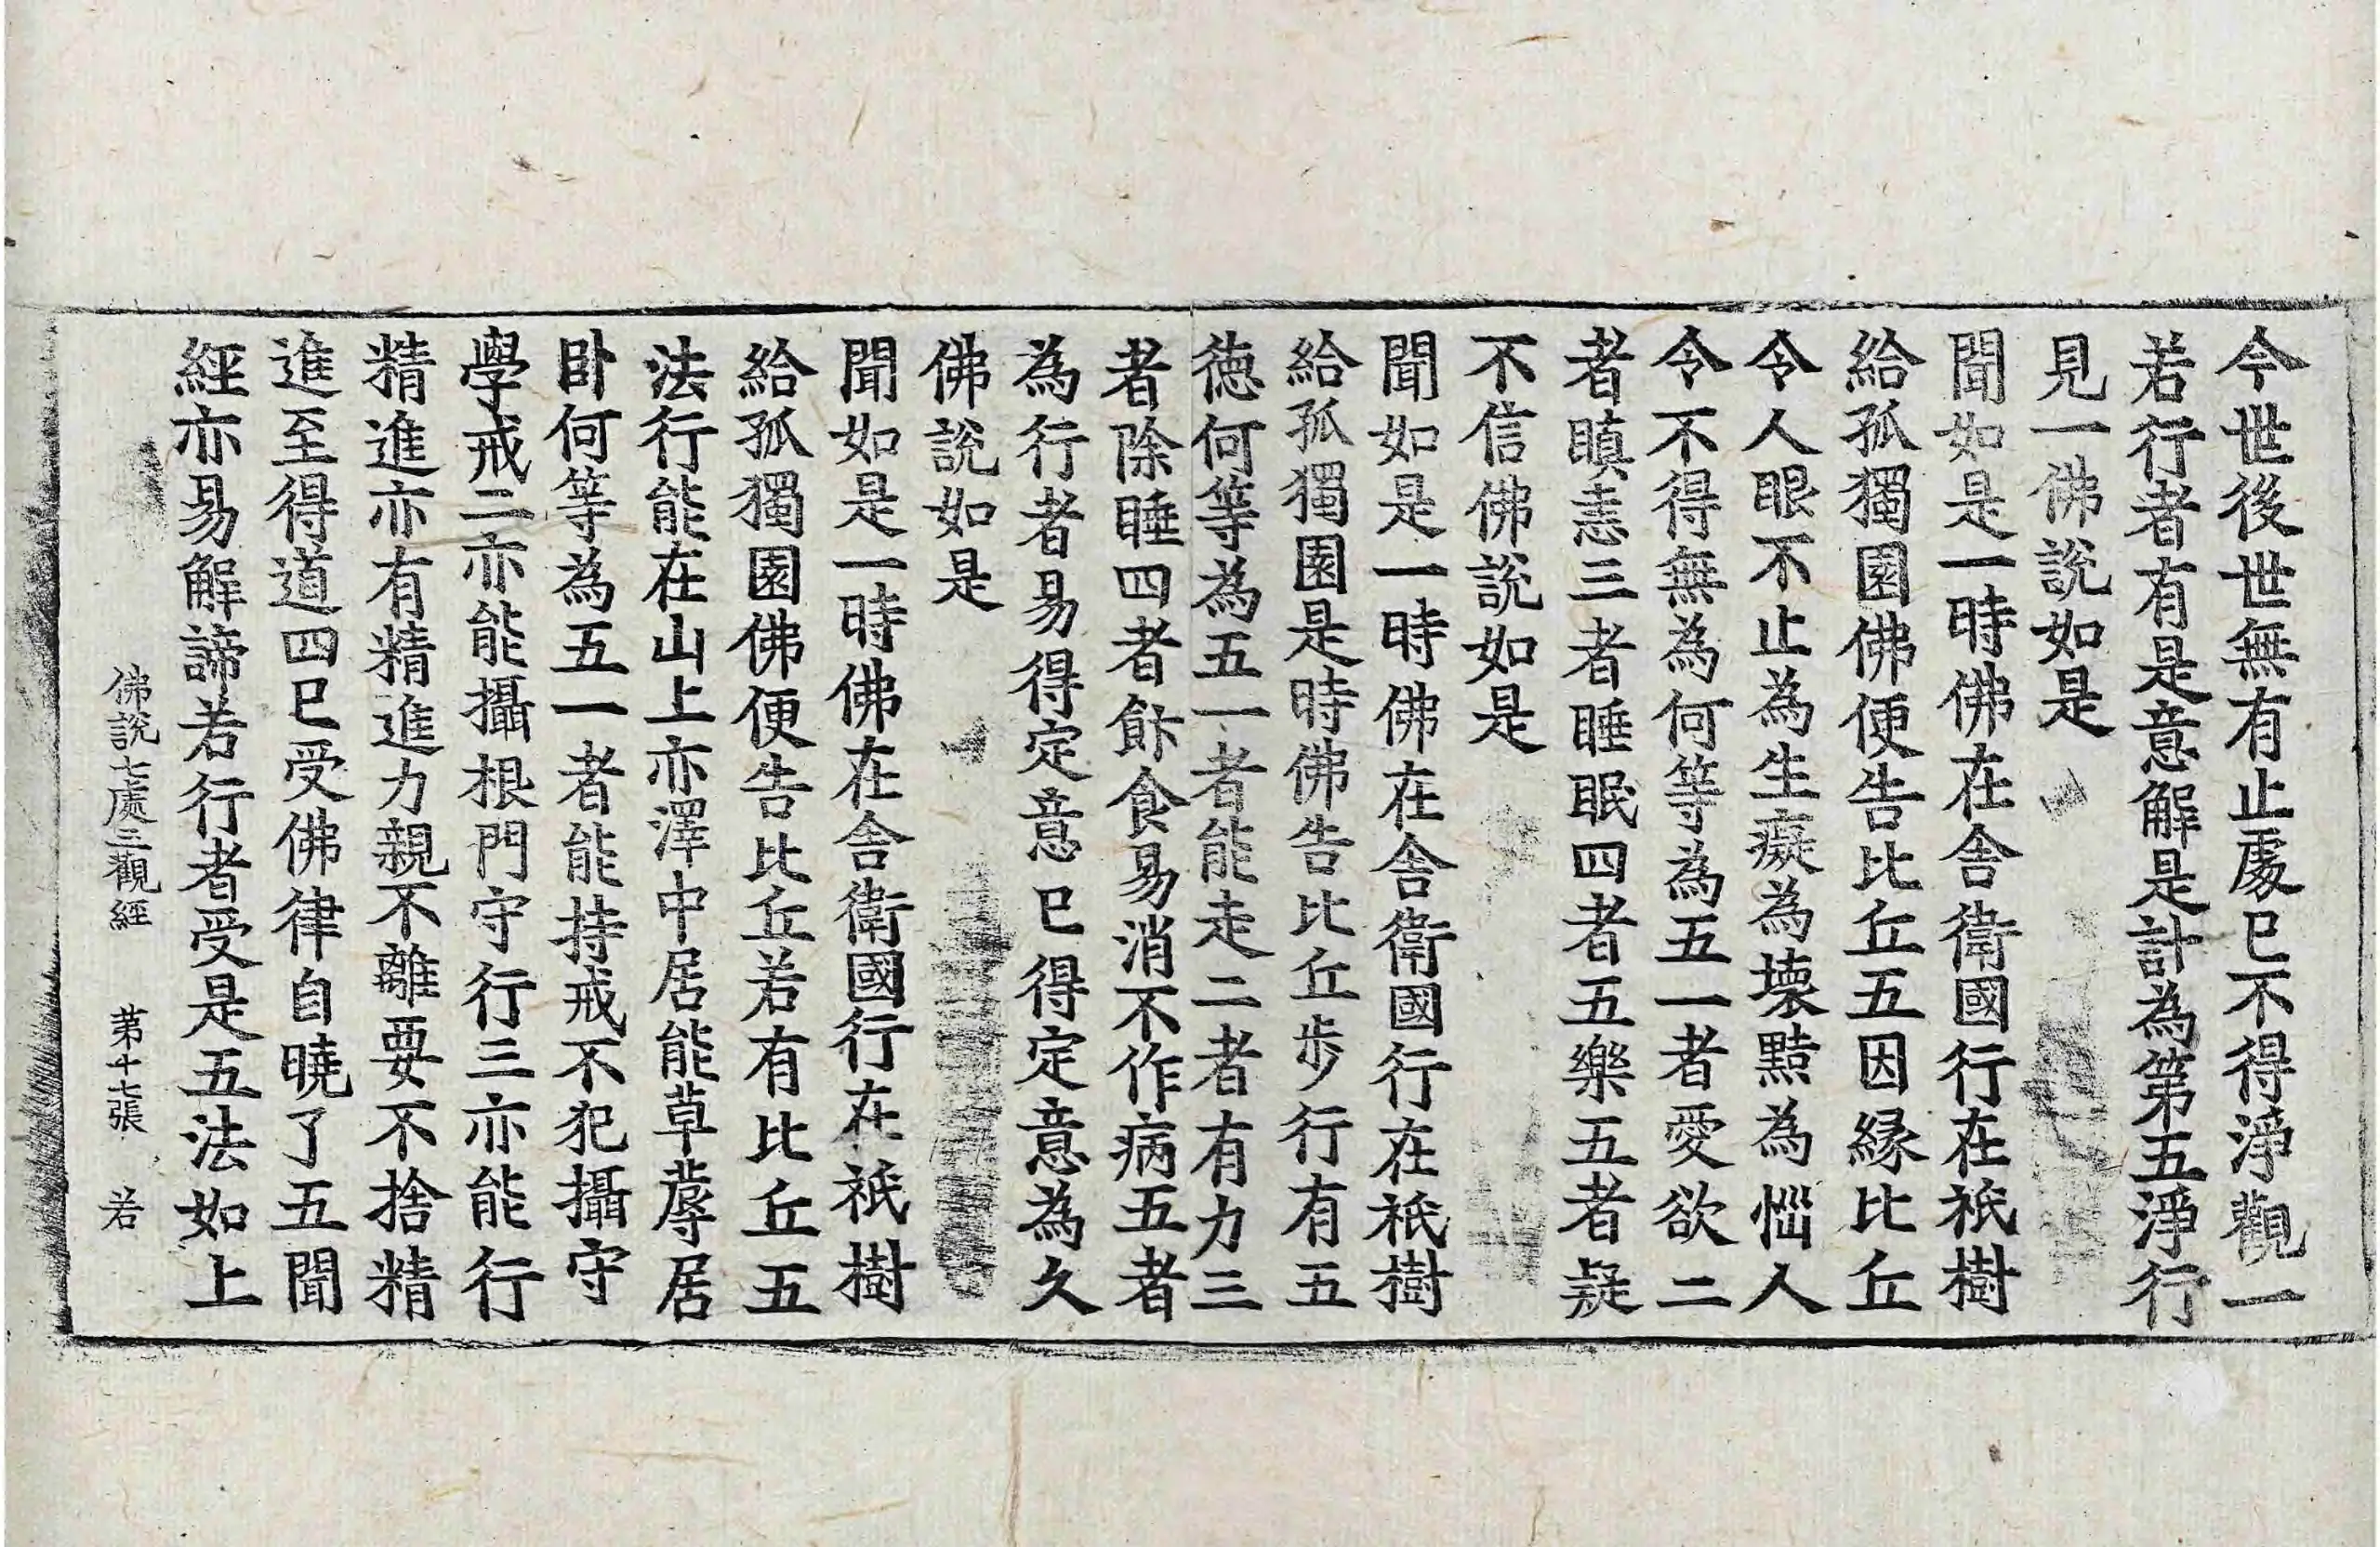 今世後世無有止處已不得淨觀一
若行者有是意解是計為第五淨行
見一佛說如是
聞如是一時佛在舍衛國行在祇樹
給孤獨園佛便告比丘五因緣比丘
令人眼不止為生癡為壞黠為惱人
令不得無為何等為五一者愛欲二
者瞋恚三者睡眠四者五樂五者疑
不信佛說如是
聞如是一時佛在舍衛國行在祇樹
給孤獨園是時佛告比丘步行有五
德何等為五一者能走二者有力三
者除睡四者飲食易消不作病五者
為行者易得定意已得定意為久
佛說如是
聞如是一時佛在舍衛國行在祇樹
給孤獨園佛便告比丘若有比丘五
法行能在山上亦澤中居能草蓐居
臥何等為五一者能持戒不犯攝守
學戒二亦能攝根門守行三亦能行
精進亦有精進力親不離要不捨精
進至得道四已受佛律自曉了五聞
經亦易解諦若行者受是五法如上
佛說七處三觀經 第十七張 若